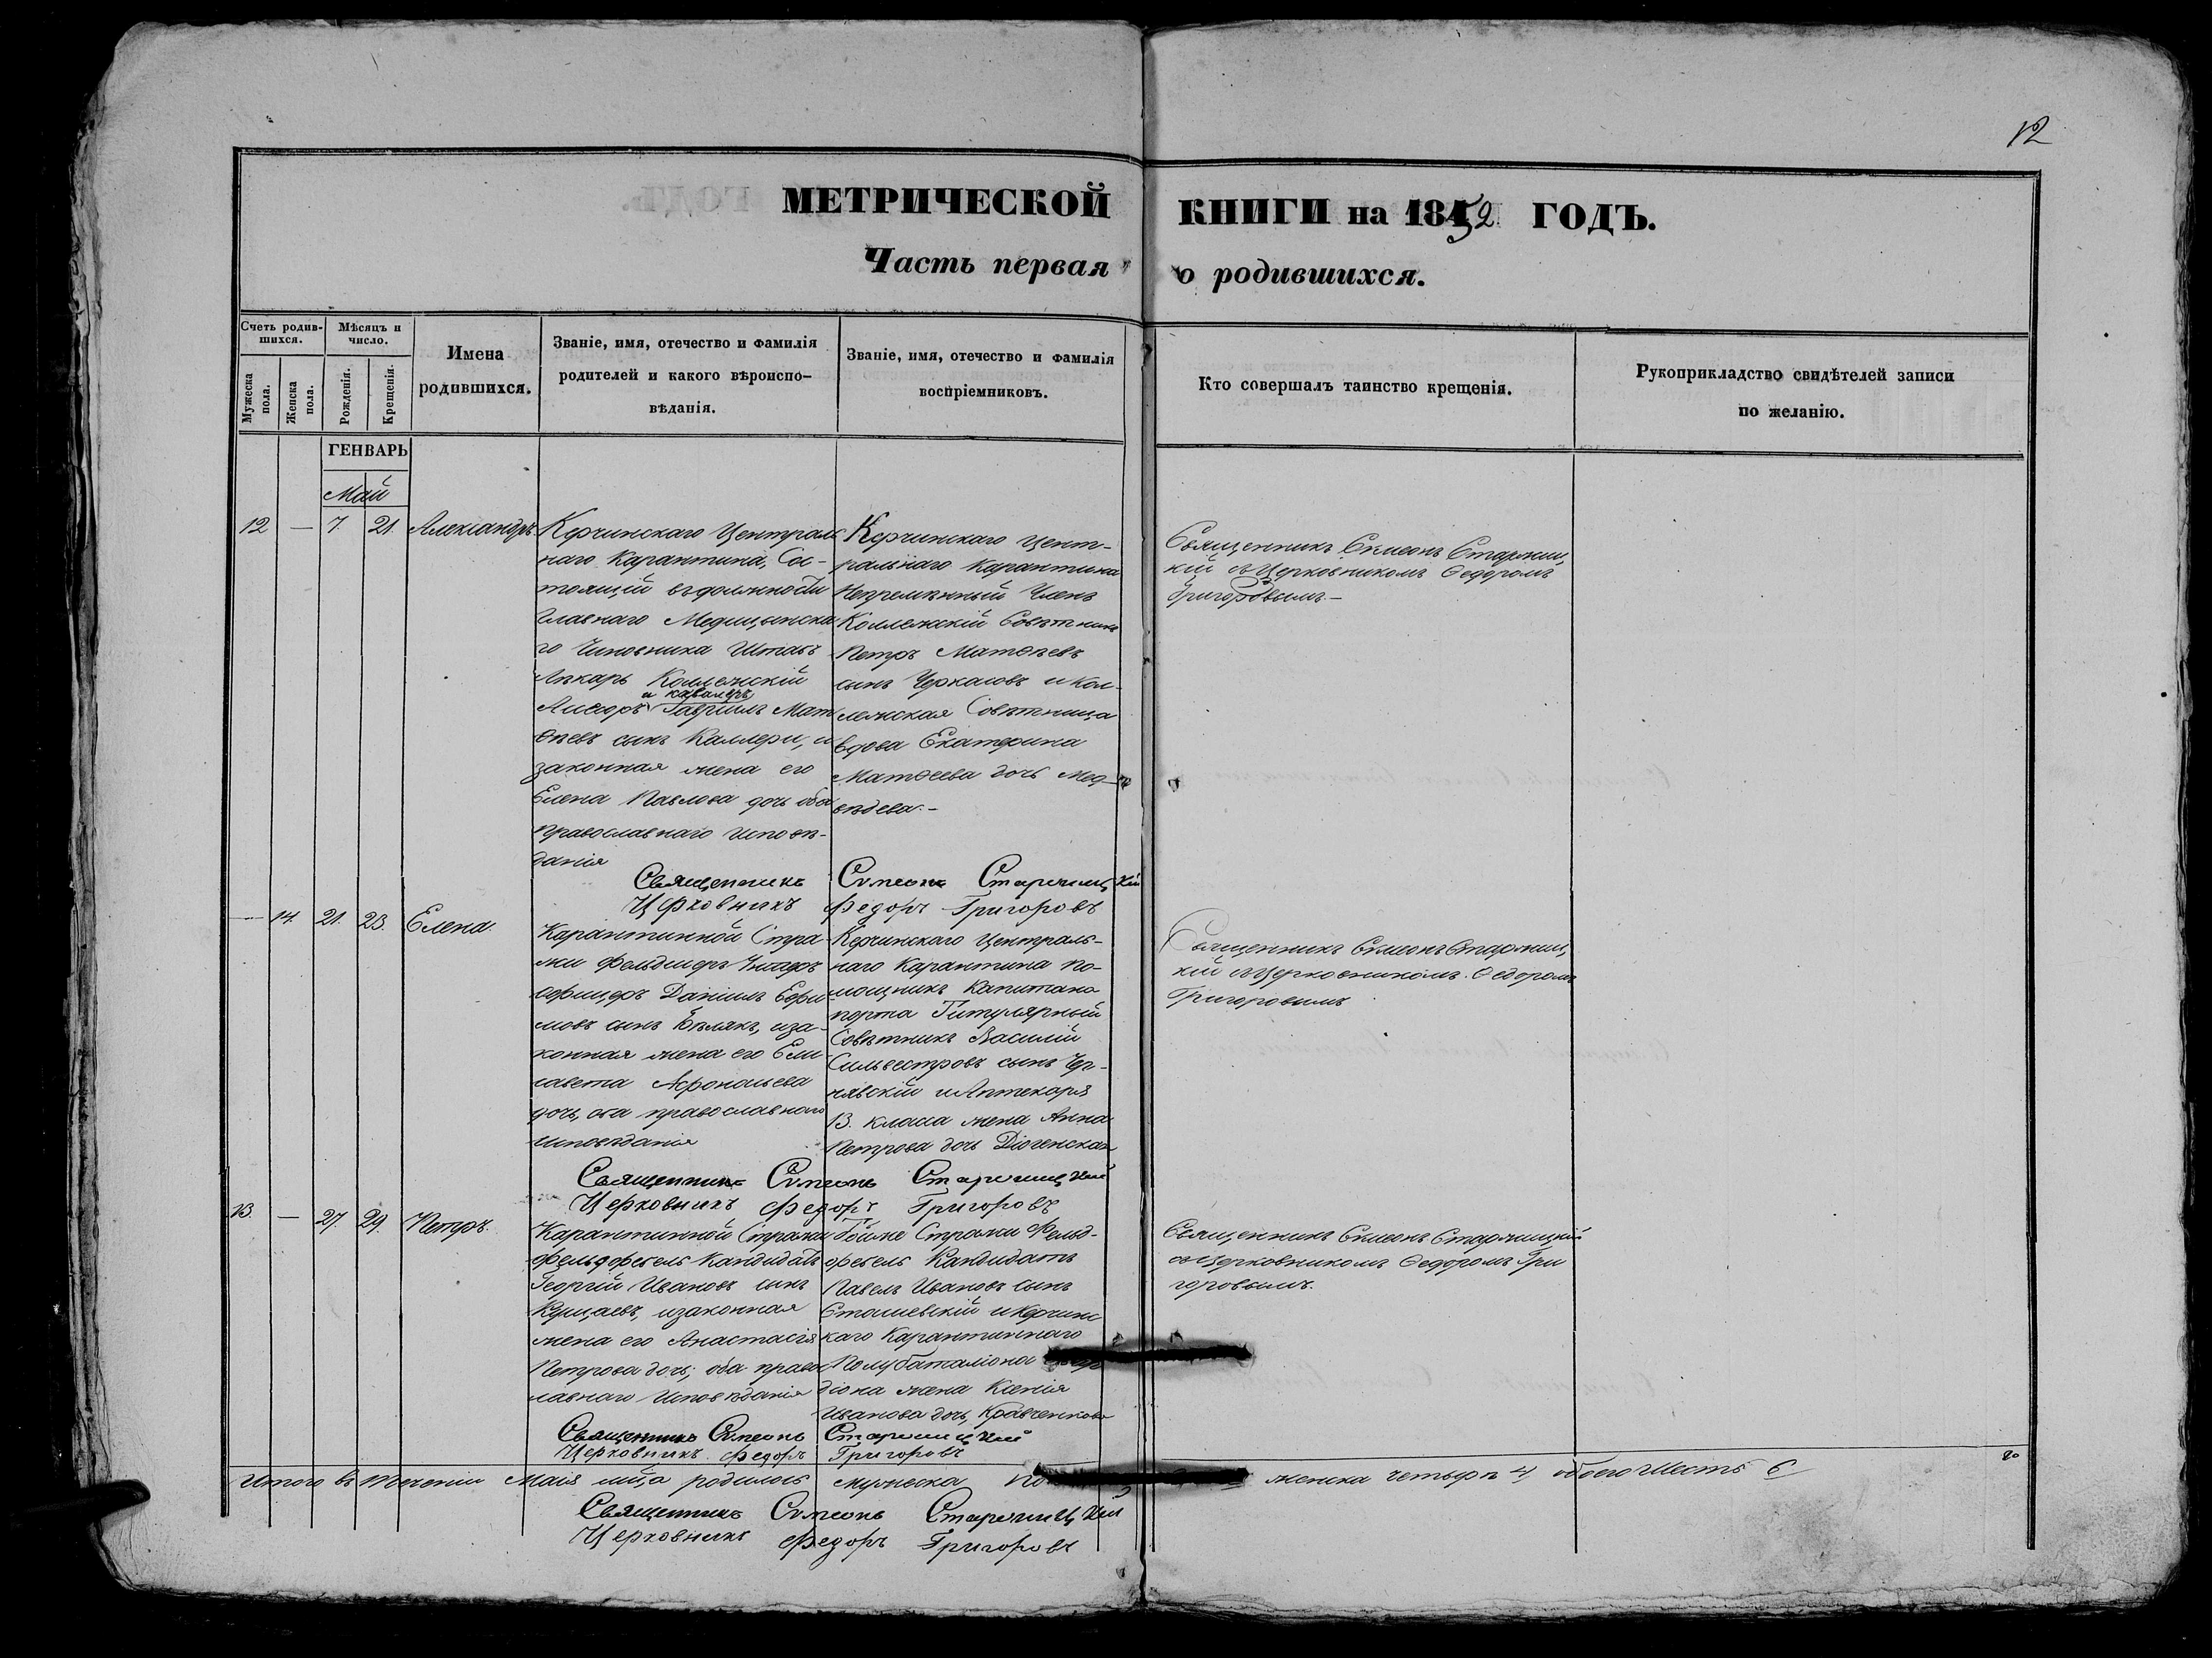 12
МЕТРИЧЕСКОЙ КНИГИ на 1852 ГОДЪ.
Часть первая о родившихся.
Счетъ родив-
шихся.
Мужеска
пола.
Женска
пола.
Мѣсяцъ и
число.
Рожденія.
Крещенія.
Имена
родившихся.
Званіе, имя, отечество и фамилія
родителей и какого вѣроиспо-
вѣданія.
Званіе, имя, отечество и фамилія
воспріемниковъ.
Кто совершалъ таинство крещенія.
Рукоприкладство свидѣтелей записи
по желанію.
ГЕНВАРЬ
Май
12 — 7. 21. Александръ.
Керчинскаго Централь
наго Карантина, Сос-
тоящій въ должности
Главнаго Медицынска
го Чиновника Штабъ
Лѣкарь Коллежскій
и кавалеръ
Ассесоръ Гавріилъ Мат
ѳѣевъ сынъ Каллери, и
законная жена его
Елена Павлова дочь оба
православнаго исповѣ-
данія
Керчинскаго Цент-
ральнаго Карантина
Непремѣнный Членъ
Коллежскій Совѣтникъ
Петръ Матѳѣевъ
сынъ Черкасовъ и Кол-
лежская Совѣтница
вдова Екатерина
Матѳеева дочь Мед-
вѣдева.-
Священникъ Сѵмеонъ Старжиц
кій съ Церковникомъ Ѳедоромъ
Григоровымъ.-
Священникъ Сѵмеонъ Старжицкій
Церковникъ Федоръ Григоровъ
— 14. 21. 23. Елена.
Карантинной Стра-
жи Фельдшеръ Унтеръ
офицеръ Даніилъ Ефи
мовъ сынъ Бѣлякъ, и за-
конная жена его Ели
савета Афонасьева
дочь, оба православнаго
исповѣданія
Керчинскаго Централь-
наго Карантина По-
мощникъ Капитана
порта Титулярный
Совѣтникъ Василій
Сильвестровъ сынъ Чер-
нявскій и Аптекаря
13. класса жена Анна
Петрова дочь Діогенская
Священникъ Сѵмеонъ Старжиц
кій съ Церковникомъ Ѳедоромъ
Григоровымъ
Священникъ Сѵмеонъ Старжицкій
Церковникъ Федоръ Григоровъ
13. — 27. 29. Петръ.
Карантинной Стражи
Фельдфебель Кандидатъ
Георгій Ивановъ сынъ
Куцаевъ, и законная
жена его Анастасія
Петрова дочь; оба право
лавнаго исповѣданія
Тойже Стражи Фельд-
фебель Кандидатъ
Павелъ Ивановъ сынъ
Сташевскій и Керчинс
каго Карантиннаго
Полубаталіона
діона жена Ксенія
Иванова дочь, Кравченкова
Священникъ Сѵмеонъ Старжицкій
съ Церковникомъ Ѳедоромъ Гри
горовымъ.
Священникъ Сѵмеонъ Старжицкій
Церковникъ Федоръ Григоровъ
Итого въ теченіи Маія мца родилось мужеска женска четыре 4, обоего шесть 6
Священникъ Сѵмеонъ Старжицкій
Церковникъ Федоръ Григоровъ